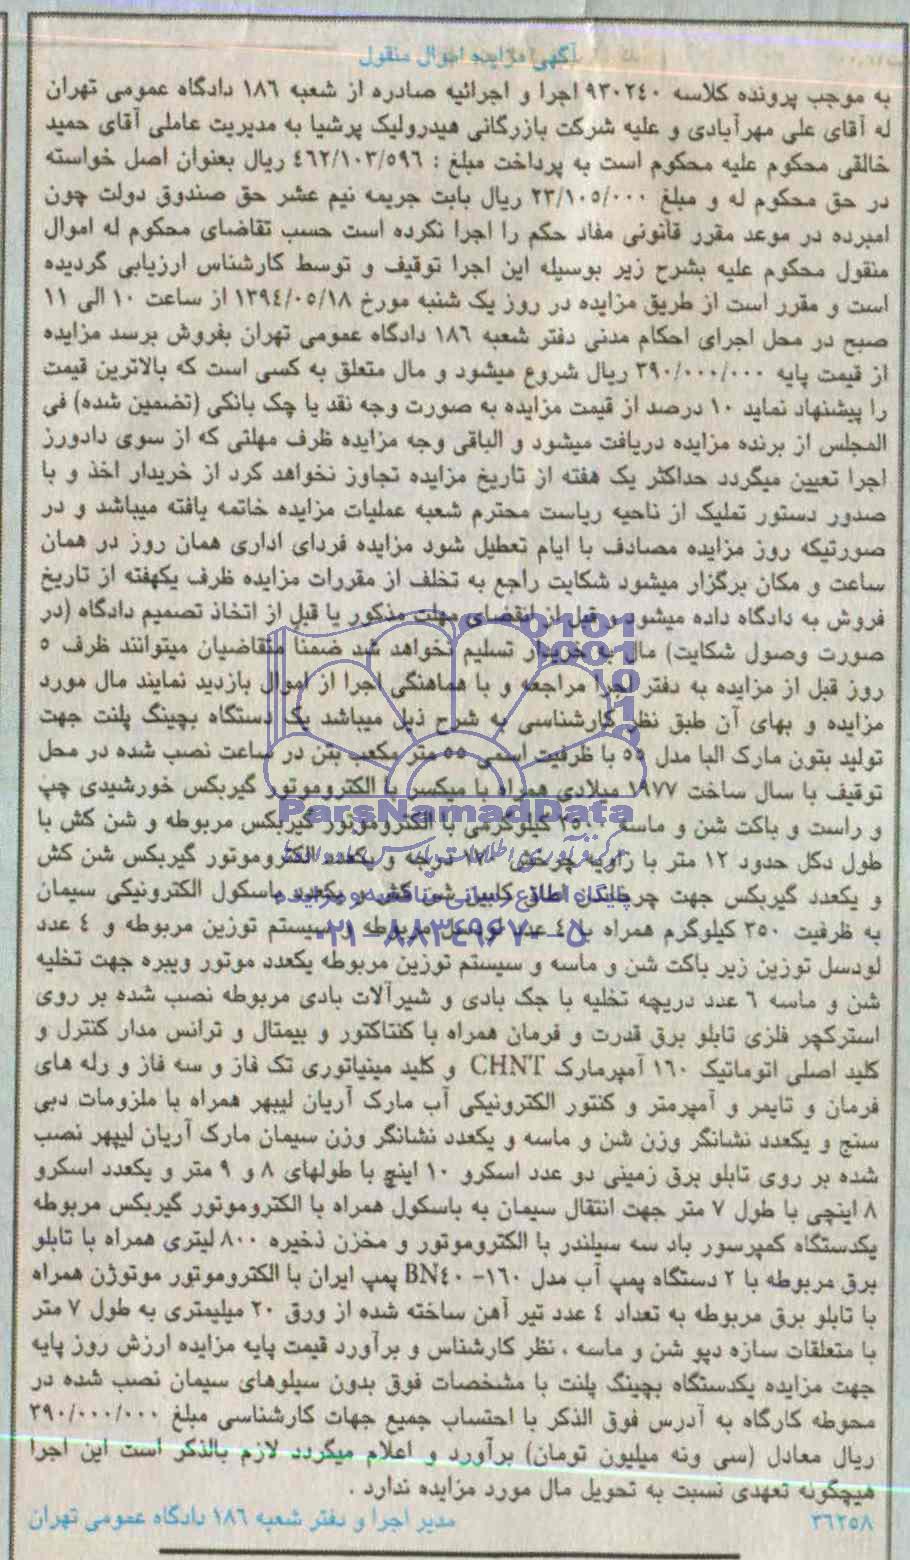 آگهی مزایده اموال منقول
به موجب پرونده کلاسه ۹۳۰۲٤۰ اجرا و اجرائیه صادره از شعبه ۱۸٦ دادگاه عمومی تهران
له آقای علی مهرآبادی و علیه شرکت بازرگانی هیدرولیک پرشیا به مدیریت عاملی آقای حمید
خالقی محکوم علیه محکوم است به پرداخت مبلغ : ٤٦۲/۱۰۳/۵۹٦ ریال بعنوان اصل خواسته
در حق محکوم له و مبلغ ۲۳/۱۰۵/۰۰۰ ریال بابت جریمه نیم عشر حق صندوق دولت چون
امبرده در موعد مقرر قانونی مفاد حکم را اجرا نکرده است حسب تقاضای محکوم له اموال
منقول محکوم علیه بشرح زیر بوسیله این اجرا توقیف و توسط کارشناس ارزیابی گردیده
است و مقرر است از طریق مزایده در روز یک شنبه مورخ ۱۳۹٤/۰۵/۱۸ از ساعت ۱۰ الی ۱۱
صبح در محل اجرای احکام مدنی دفتر شعبه ۱۸٦ دادگاه عمومی تهران بفروش برسد مزایده
از قیمت پایه ۳۹۰/۰۰۰/۰۰۰ ریال شروع میشود و مال متعلق به کسی است که بالاترین قیمت
را پیشنهاد نماید ۱۰ درصد از قیمت مزایده به صورت وجه نقد یا چک بانکی (تضمین شده) فی
المجلس از برنده مزایده دریافت میشود و الباقی وجه مزایده ظرف مهلتی که از سوی دادورز
اجرا تعیین میگردد حداکثر یک هفته از تاریخ مزایده تجاوز نخواهد کرد از خریدار اخذ و با
صدور دستور تملیک از ناحیه ریاست محترم شعبه عملیات مزایده خاتمه یافته میباشد و در
صورتیکه روز مزایده مصادف با ایام تعطیل شود مزایده فردای اداری همان روز در همان
ساعت و مکان برگزار میشود شکایت راجع به تخلف از مقررات مزایده ظرف یکهفته از تاریخ
فروش به دادگاه داده میشود و قبل از انقضای مهلت مذکور یا قبل از اتخاذ تصمیم دادگاه (در
صورت وصول شکایت) مال به خریدار تسلیم نخواهد شد ضمناً متقاضیان میتوانند ظرف ۵
روز قبل از مزایده به دفتر اجرا مراجعه و با هماهنگی اجرا از اموال بازدید نمایند مال مورد
مزایده و بهای آن طبق نظر کارشناسی به شرح ذیل میباشد یک دستگاه بچینگ پلنت جهت
تولید بتون مارک البا مدل ۵۵ با ظرفیت اسمی ۵۵ متر مکعب بتن در ساعت نصب شده در محل
توقیف با سال ساخت ۱۹۷۷ میلادی همراه با میکسر با الکتروموتور گیربکس خورشیدی چپ
ParsNamadData
و راست و باکت شن و ماسه کیلوگرمی با الکتروموتور گیربکس مربوطه و شن کش با
طول دکل حدود ۱۲ متر با زاویه چرخش ۱۷۰ درجه و یکعدد الکتروموتور گیربکس شن کش
و یکعدد گیربکس جهت چرخاندن اطاق کابین شن کش و یکعدد باسکول الکترونیکی سیمان
پایگاه اطلاع رسانی مناقصه و مزایده
به ظرفیت ۳۵۰ کیلوگرم همراه با ٤ عدد لودسل مربوطه و سیستم توزین مربوطه و ٤ عدد
۰۲۱-۸۸۳٤۹٦۷۰-۵
لودسل توزین زیر باکت شن و ماسه و سیستم توزین مربوطه یکعدد موتور ویبره جهت تخلیه
شن و ماسه ٦ عدد دریچه تخلیه با جک بادی و شیرآلات بادی مربوطه نصب شده بر روی
استرکچر فلزی تابلو برق قدرت و فرمان همراه با کنتاکتور و بیمتال و ترانس مدار کنترل و
کلید اصلی اتوماتیک ۱٦۰ آمپرمارک CHNT و کلید مینیاتوری تک فاز و سه فاز و رله های
فرمان و تایمر و آمپرمتر و کنتور الکترونیکی آب مارک آریان لیبهر همراه با ملزومات دبی
سنج و یکعدد نشانگر وزن شن و ماسه و یکعدد نشانگر وزن سیمان مارک آریان لیپهر نصب
شده بر روی تابلو برق زمینی دو عدد اسکرو ۱۰ اینچ با طولهای ۸ و ۹ متر و یکعدد اسکرو
۸ اینچی با طول ۷ متر جهت انتقال سیمان به باسکول همراه با الکتروموتور گیربکس مربوطه
یکدستگاه کمپرسور باد سه سیلندر با الکتروموتور و مخزن ذخیره ۸۰۰ لیتری همراه با تابلو
برق مربوطه با ۲ دستگاه پمپ آب مدل BN٤۰ -۱٦۰ پمپ ایران با الکتروموتور موتوژن همراه
با تابلو برق مربوطه به تعداد ٤ عدد تیر آهن ساخته شده از ورق ۲۰ میلیمتری به طول ۷ متر
با متعلقات سازه دپو شن و ماسه . نظر کارشناس و برآورد قیمت پایه مزایده ارزش روز پایه
جهت مزایده یکدستگاه بچینگ پلنت با مشخصات فوق بدون سیلوهای سیمان نصب شده در
محوطه کارگاه به آدرس فوق الذکر با احتساب جمیع جهات کارشناسی مبلغ ۳۹۰/۰۰۰/۰۰۰
ریال معادل (سی ونه میلیون تومان) برآورد و اعلام میگردد لازم بالذکر است این اجرا
هیچگونه تعهدی نسبت به تحویل مال مورد مزایده ندارد .
۳٦۲۵۸ مدیر اجرا و دفتر شعبه ۱۸٦ دادگاه عمومی تهران